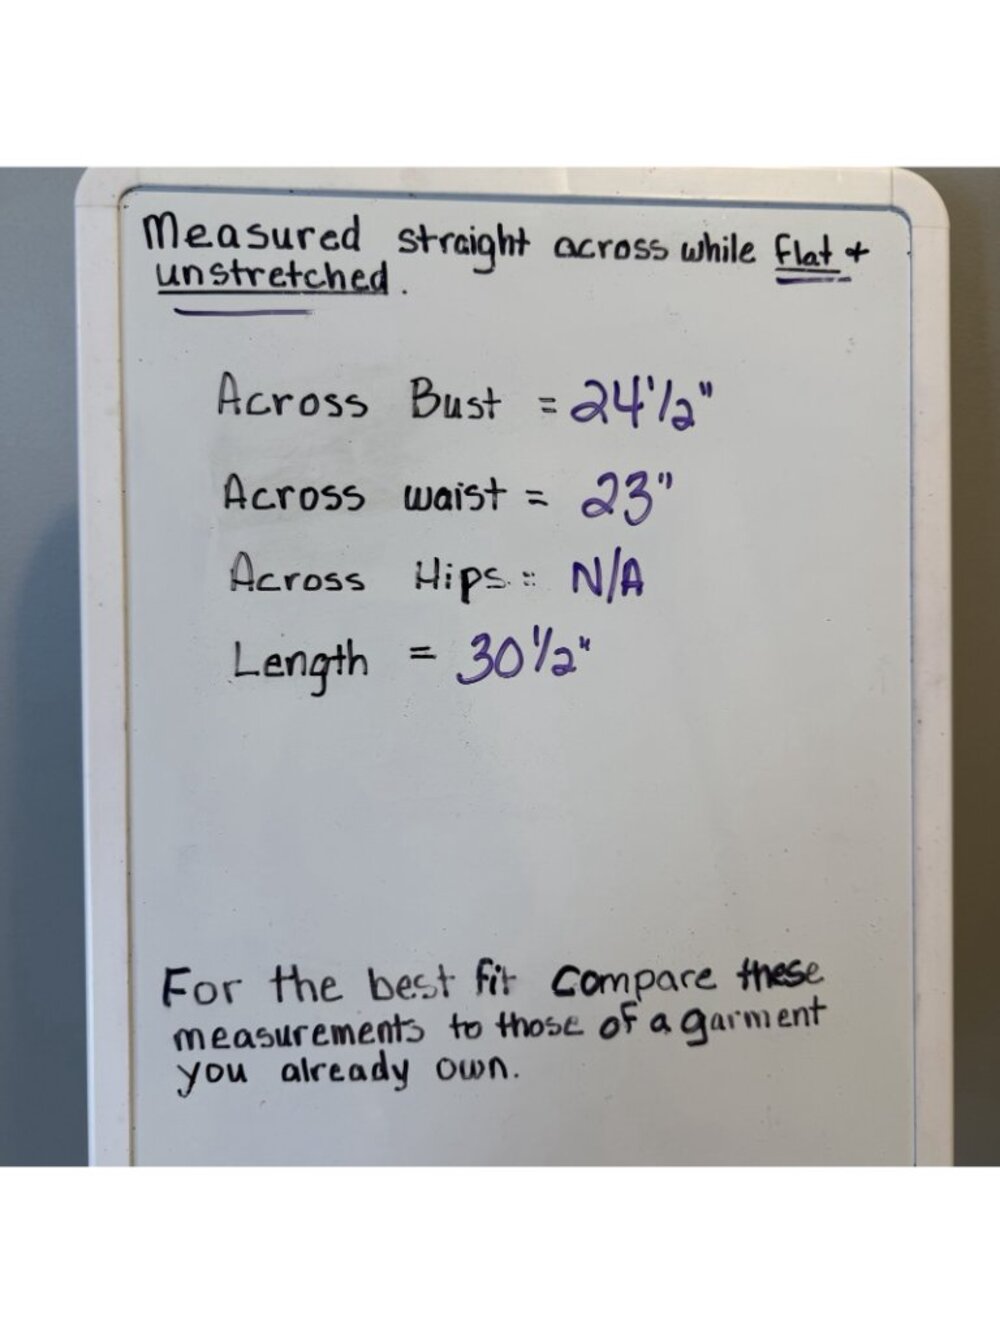 Measured straight across while flat +
unstretched.
Across Bust = 24 1/2"
Across waist = 23"
Across Hips = N/A
Length = 30 1/2"
For the best fit compare these
measurements to those of a garment
you already own.